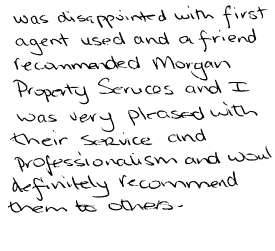 was disappointed with first
agent used and a friend
recommended Morgan
Property Services and I
was very pleased with
their service and
professionalism and woul
definitely recommend
them to others.